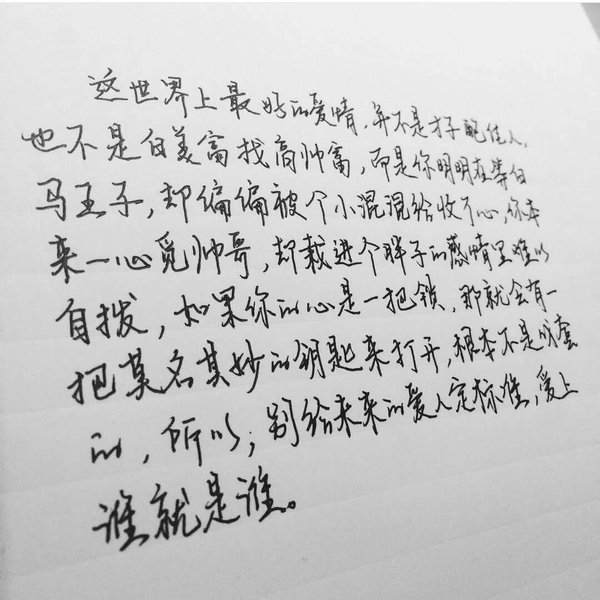 这世界上最好的爱情，并不是才子配佳人，
也不是白美富找高帅富，而是你明明在等白
马王子，却偏偏被个小混混给收了心，你本
来一心觅帅哥，却栽进个胖子的感情里难以
自拨，如果你的心是一把锁，那就会有一
把莫名其妙的钥匙来打开，根本不是原套
的，所以，别给未来的爱人定标准，爱上
谁就是谁。